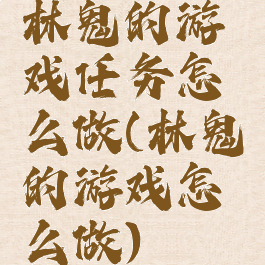 林鬼的游
戏任务怎
么做(林鬼
的游戏怎
么做)